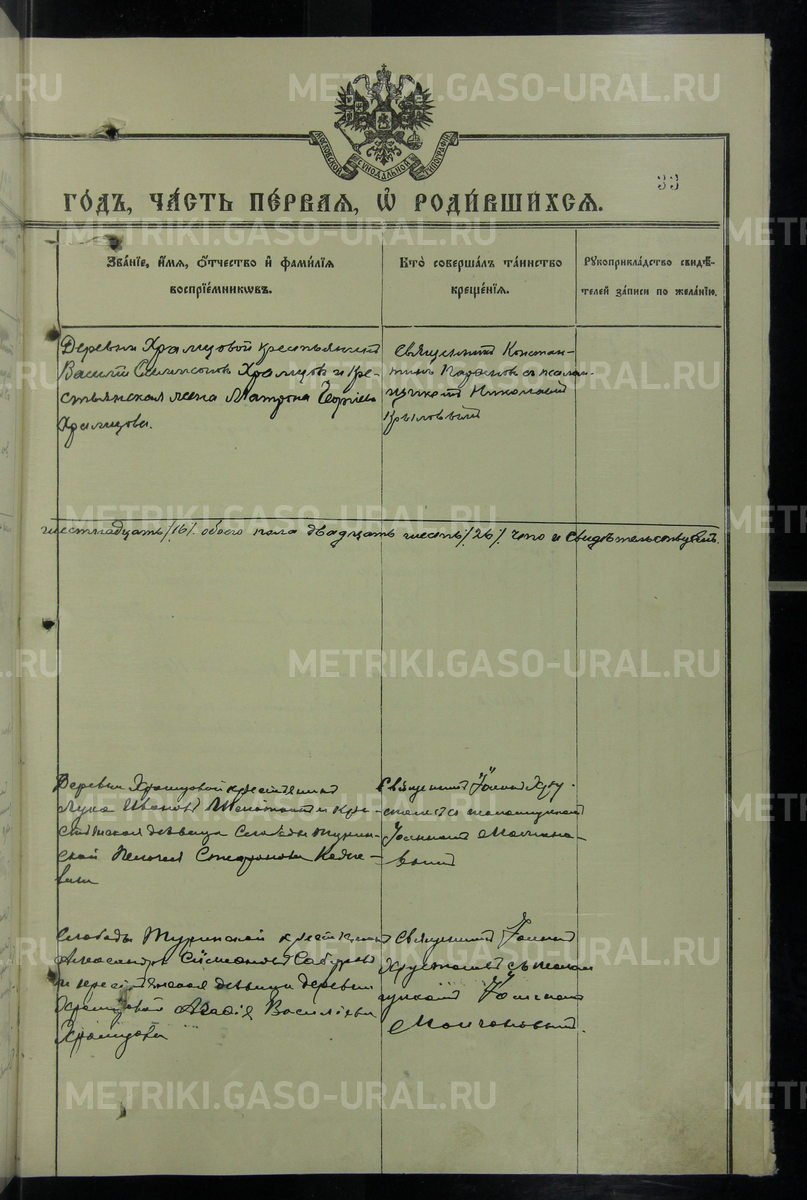 МОСКОВСКОЙ СѴНОДАЛЬНОЙ ТИПОГРАФІИ
33
ГО́ДЪ, ЧА́СТЬ ПЕ́РВАЯ, Ѡ҆ РОДИ́ВШИХСЯ.
Зва́нїе, и҆́мя, ѻ҆́тчество и҆ фами́лїя
воспрїе́мникѡвъ.
Кто̀ соверша́лъ та́инство
креще́нїя.
Рꙋкоприкла́дство свидѣ́-
телей за́писи по жела́нїю.
Деревни Храмцовой крестьянинъ
Василій Симеоновъ Храмцовъ и кре-
стьянская жена Матрона Георгіева
Храмцова.
Священникъ Констан-
тинъ съ псалом-
щикомъ Николаемъ
Крыловымъ
шестнадцать /16/. обоего пола двадцать шесть /26/. что и свидѣтельствуемъ.
Деревни Храмцовой крестьянинъ
Лука Ивановъ и кре-
стьянская дѣвица Слободы Турин-
ской Пелагія Стефанова
Священникъ Іоаннъ Хру-
сталевъ съ псаломщикомъ
Іоанномъ Молчано-
вымъ
Слободы Туринской крестьянинъ
Александръ Симеоновъ
и крестьянская дѣвица деревни
Храмцовой Васильева
Храмцова
Священникъ Іоаннъ
Хрусталевъ съ псалом
щикомъ Іоанномъ
Молчановымъ.
METRIKI.GASO-URAL.RU